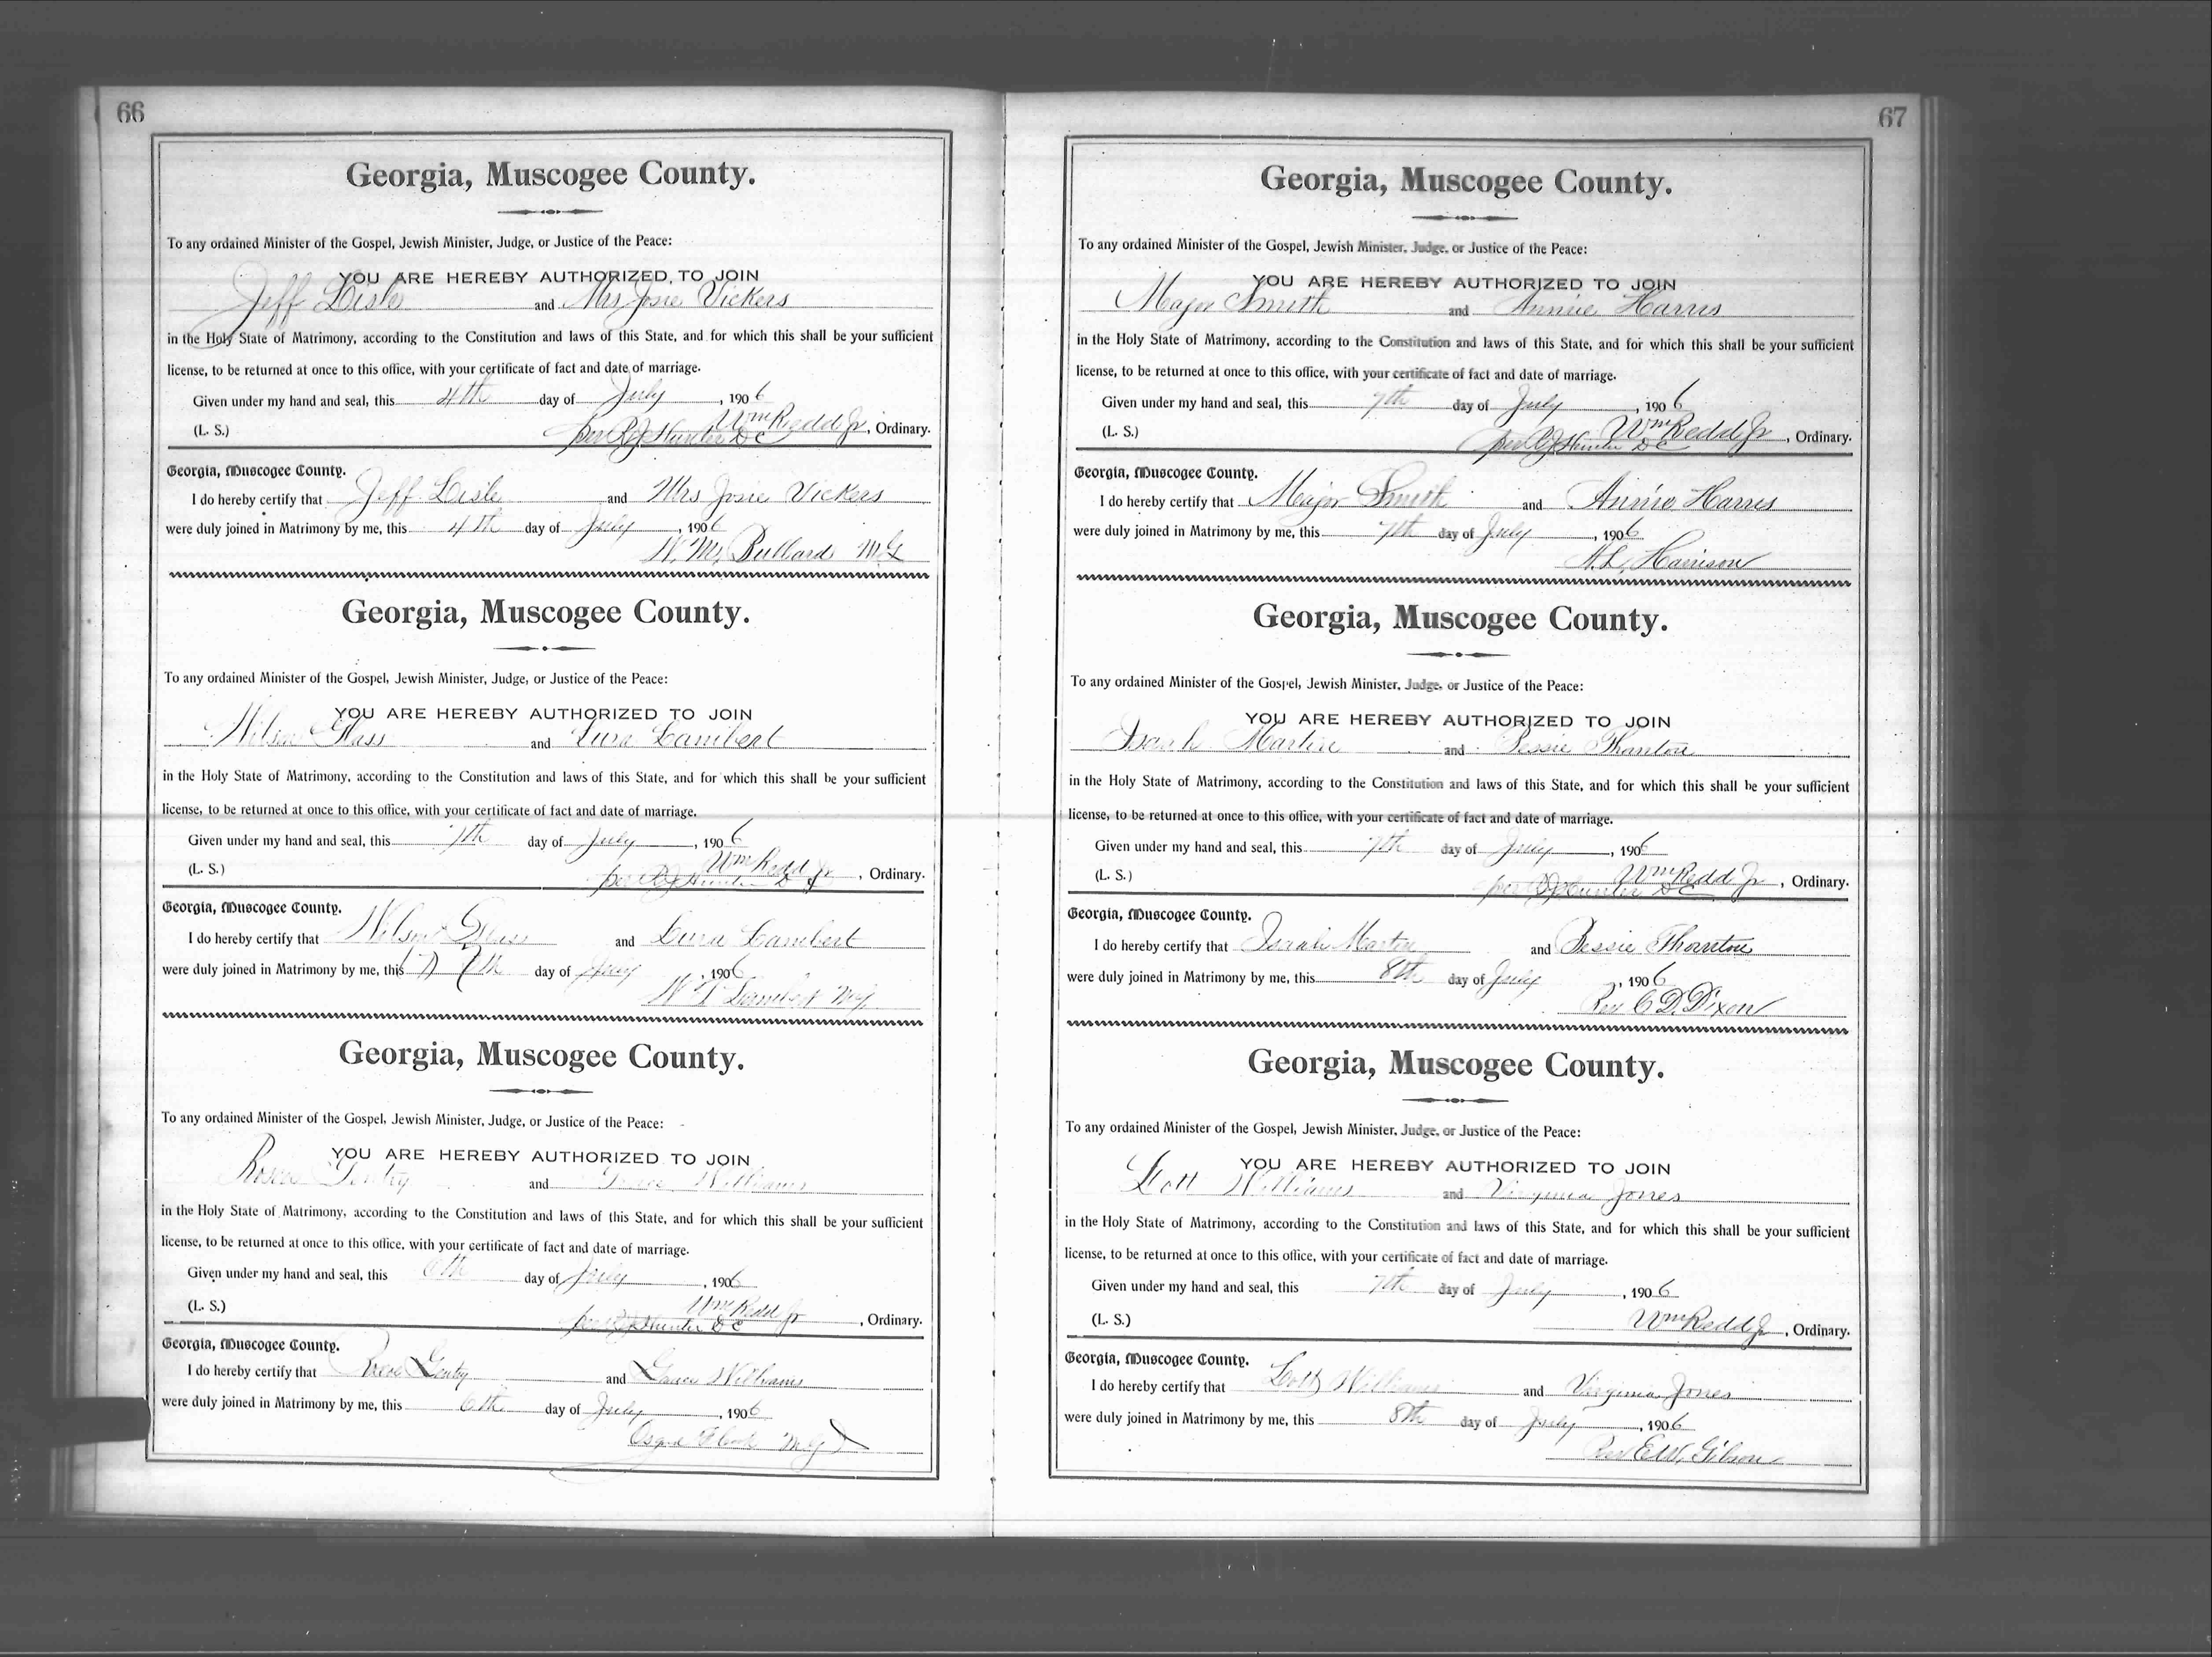 66
Georgia, Muscogee County.
To any ordained Minister of the Gospel, Jewish Minister, Judge, or Justice of the Peace:
YOU ARE HEREBY AUTHORIZED TO JOIN
Jeff Lisle and Mrs Josie Vickers
in the Holy State of Matrimony, according to the Constitution and laws of this State, and for which this shall be your sufficient
license, to be returned at once to this office, with your certificate of fact and date of marriage.
Given under my hand and seal, this 4th day of July, 1906
Wm Redd Jr, Ordinary.
(L. S.) per R J Hunter D C
Georgia, Muscogee County.
I do hereby certify that Jeff Lisle and Mrs Josie Vickers
were duly joined in Matrimony by me, this 4th day of July, 1906
W. M. Bullard M G
Georgia, Muscogee County.
To any ordained Minister of the Gospel, Jewish Minister, Judge, or Justice of the Peace:
YOU ARE HEREBY AUTHORIZED TO JOIN
Wilson Glass and Lura Lambert
in the Holy State of Matrimony, according to the Constitution and laws of this State, and for which this shall be your sufficient
license, to be returned at once to this office, with your certificate of fact and date of marriage.
Given under my hand and seal, this 7th day of July, 1906
Wm Redd Jr, Ordinary.
(L. S.) per R J Hunter D C
Georgia, Muscogee County.
I do hereby certify that Wilson Glass and Lura Lambert
were duly joined in Matrimony by me, this 7th day of July, 1906
Lambert M G
Georgia, Muscogee County.
To any ordained Minister of the Gospel, Jewish Minister, Judge, or Justice of the Peace:
YOU ARE HEREBY AUTHORIZED TO JOIN
Gentry and Grace Williams
in the Holy State of Matrimony, according to the Constitution and laws of this State, and for which this shall be your sufficient
license, to be returned at once to this office, with your certificate of fact and date of marriage.
Given under my hand and seal, this 6th day of July, 1906
Wm Redd Jr, Ordinary.
(L. S.) per R J Hunter D C
Georgia, Muscogee County.
I do hereby certify that Gentry and Grace Williams
were duly joined in Matrimony by me, this 6th day of July, 1906
M G
67
Georgia, Muscogee County.
To any ordained Minister of the Gospel, Jewish Minister, Judge, or Justice of the Peace:
YOU ARE HEREBY AUTHORIZED TO JOIN
Major Smith and Annie Harris
in the Holy State of Matrimony, according to the Constitution and laws of this State, and for which this shall be your sufficient
license, to be returned at once to this office, with your certificate of fact and date of marriage.
Given under my hand and seal, this 7th day of July, 1906
Wm Redd Jr, Ordinary.
(L. S.) per R J Hunter D C
Georgia, Muscogee County.
I do hereby certify that Major Smith and Annie Harris
were duly joined in Matrimony by me, this 7th day of July, 1906
Harrison
Georgia, Muscogee County.
To any ordained Minister of the Gospel, Jewish Minister, Judge, or Justice of the Peace:
YOU ARE HEREBY AUTHORIZED TO JOIN
Martin and Bessie Thornton
in the Holy State of Matrimony, according to the Constitution and laws of this State, and for which this shall be your sufficient
license, to be returned at once to this office, with your certificate of fact and date of marriage.
Given under my hand and seal, this 7th day of July, 1906
Wm Redd Jr, Ordinary.
(L. S.) per R J Hunter D C
Georgia, Muscogee County.
I do hereby certify that Martin and Bessie Thornton
were duly joined in Matrimony by me, this 8th day of July, 1906
Rev C D. Dixon
Georgia, Muscogee County.
To any ordained Minister of the Gospel, Jewish Minister, Judge, or Justice of the Peace:
YOU ARE HEREBY AUTHORIZED TO JOIN
Lott Williams and Virginia Jones
in the Holy State of Matrimony, according to the Constitution and laws of this State, and for which this shall be your sufficient
license, to be returned at once to this office, with your certificate of fact and date of marriage.
Given under my hand and seal, this 7th day of July, 1906
(L. S.) Wm Redd Jr, Ordinary.
Georgia, Muscogee County.
I do hereby certify that Lott Williams and Virginia Jones
were duly joined in Matrimony by me, this 8th day of July, 1906
Rev E W. Gibson